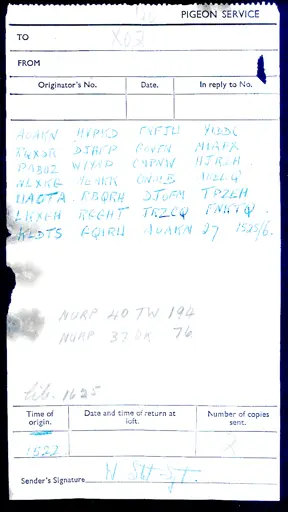 PIGEON SERVICE
TO X02
FROM
Originator's No. Date. In reply to No.
AOAKN HVPKD FNFJU YIDDC
RQXSR DJHFP GOVFN MIAPX
PABUZ WYYNP CMPNW HJRZH
NLXKG MEMKK ONOIB AKEEQ
UAOTA RBQRH DJOFM TPZEH
LKXGH RGGHT JRZCQ FNKTQ
KLDTS GQIRU AOAKN 27 1525/6.
NURP 40 TW 194
NURP 37 DK 76
lib. 1625
Time of origin. Date and time of return at loft. Number of copies sent.
1522 2
Sender's Signature W Stot Sjt.